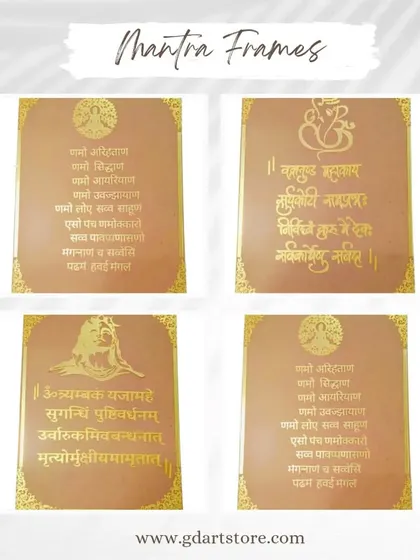 Mantra Frames
णमो अरिहताण
णमो सिद्धाण
णमो आयरियाण
णमो उवज्झायाण
णमो लोए सव्व साहूण
एसो पंच णमोक्कारो
सव्व पावप्पणासणो
मंगलाणं च सव्वेसिं
पढमं हवई मंगलं
॥ वक्रतुण्ड महाकाय
सूर्यकोटी समप्रभः
निर्विघ्नं कुरु मे देव
सर्वकार्येषु सर्वदा ॥
॥ ॐ त्र्यम्बक यजामहे
सुगन्धिं पुष्टिवर्धनम्
उर्वारुकमिवबन्धनात्
मृत्योर्मुक्षीयमामृतात् ॥
णमो अरिहताण
णमो सिद्धाण
णमो आयरियाण
णमो उवज्झायाण
णमो लोए सव्व साहूण
एसो पंच णमोक्कारो
सव्व पावप्पणासणो
मंगलाणं च सव्वेसिं
पढमं हवई मंगलं
www.gdartstore.com